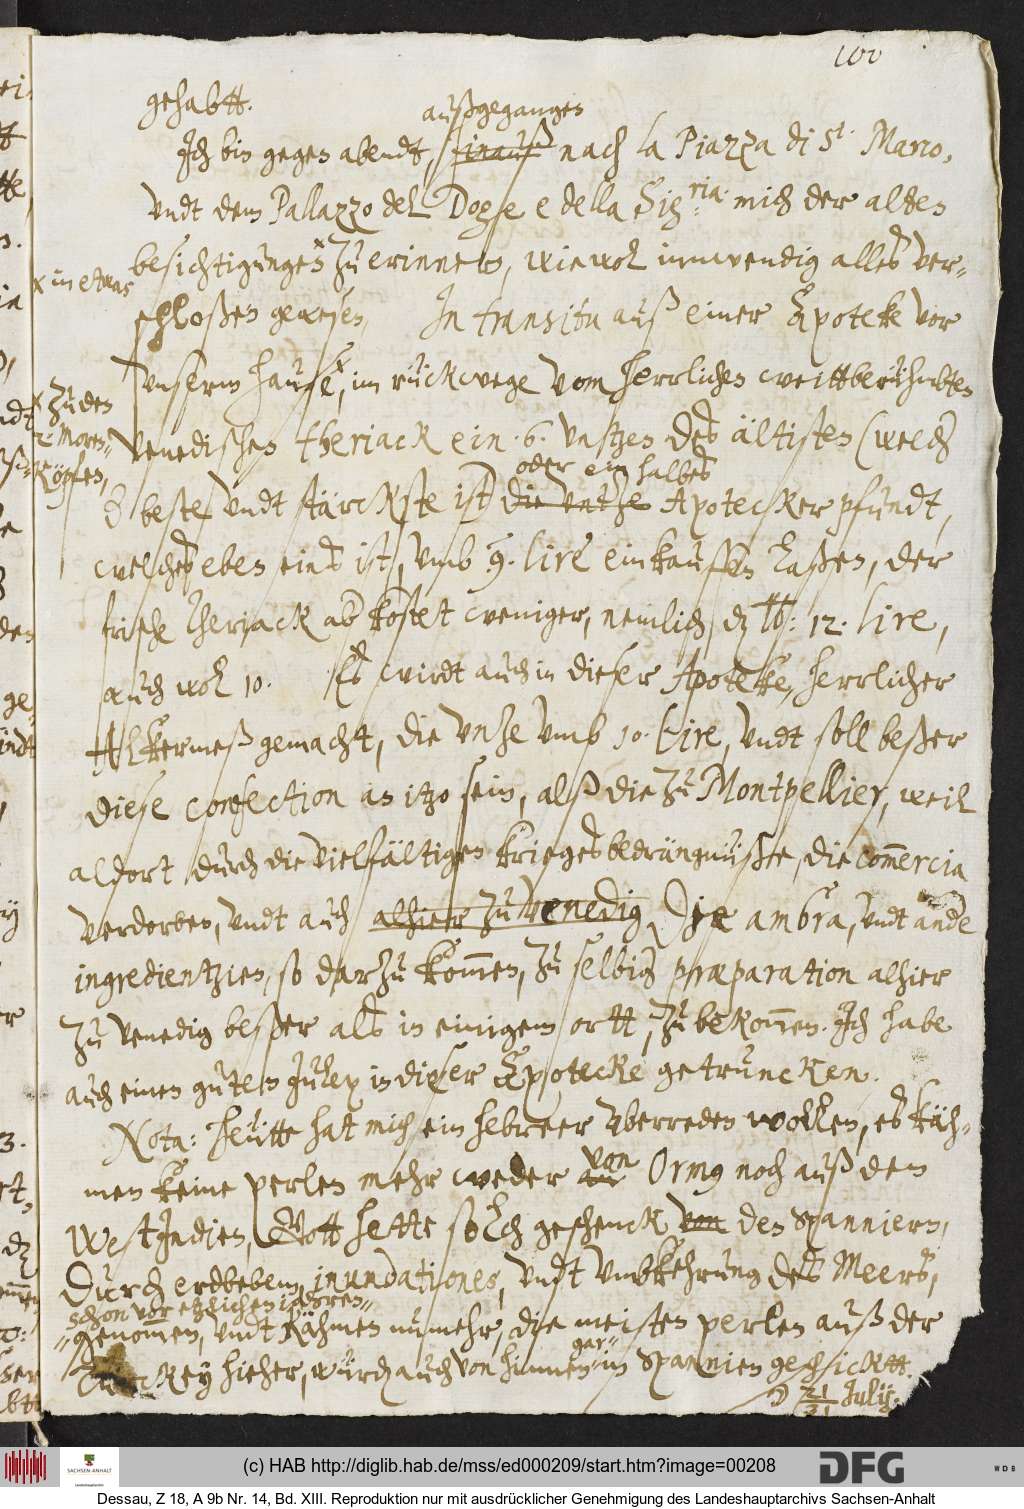 100
gehabtt.
außgegangen
Jch bin gegen abendt, hinauß nach la Piazza di St. Marco,
vndt dem Pallazzo del Doge e della Sig:ria mich der alten
besichtigungen × zu erinnern, wiewol innwendig alles ver-
× in etwas
schloßen gewesen, In transitu auß einer Apoteke vor
vnserm hause ×, im rückwege vom herrlichen weittberühmbten
× zu den
2 Moren-
köpfen,
Venedischen theriack ein 6. vntzen des ältisten (welch
oder ein halbes
d beste vndt stärckste ist) die vntze Apotecker pfundt,
welches eben eins ist, vmb 9. lire einkauffen laßen, der
frische theriack ab kostet weniger, nemlich, dz lb: 12. lire,
auch wol 10. Es wirdt auch in dieser Apoteke, herrlicher
Alkermeß gemacht, die vnze vmb 10. lire, vndt soll beßer
diese confection an itzo sein, alß die zu Montpellier, weil
aldort durch die vielfältigen kriegesbedrängnüße, die com̃ercia
verdorben, vndt auch alhier zu Venedig die ambra, vndt ande
ingredientzien, so darzu kom̃en, zu selbig præparation alhier
zu Venedig beßer als in einigem ortt, zu bekom̃en. Jch habe
auch einen guten Julep in dieser Apotecke getruncken.
Nota: heütte hat mich ein hebreer vberreden wollen, es käh-
von
men keine perlen mehr weder auß Ormus noch auß den
WestJndien, Gott hette solch geschenck von den Spanniern,
durch erdbeben, inundationes, vndt vmbkehrung des Meers,
schon vor etzlichen iahren
genom̃en, vndt kähmen numehr, die meisten perlen auß der
gar
Türckey hieher, würd auch von hinnen in Spannien geschicktt.
21
31 Julij:
(c) HAB http://diglib.hab.de/mss/ed000209/start.htm?image=00208
SACHSEN-ANHALT
DFG
WDB
Dessau, Z 18, A 9b Nr. 14, Bd. XIII. Reproduktion nur mit ausdrücklicher Genehmigung des Landeshauptarchivs Sachsen-Anhalt